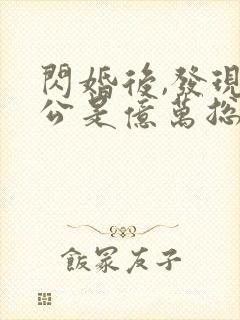 閃婚後,發現
公是億萬總
飯冢友子